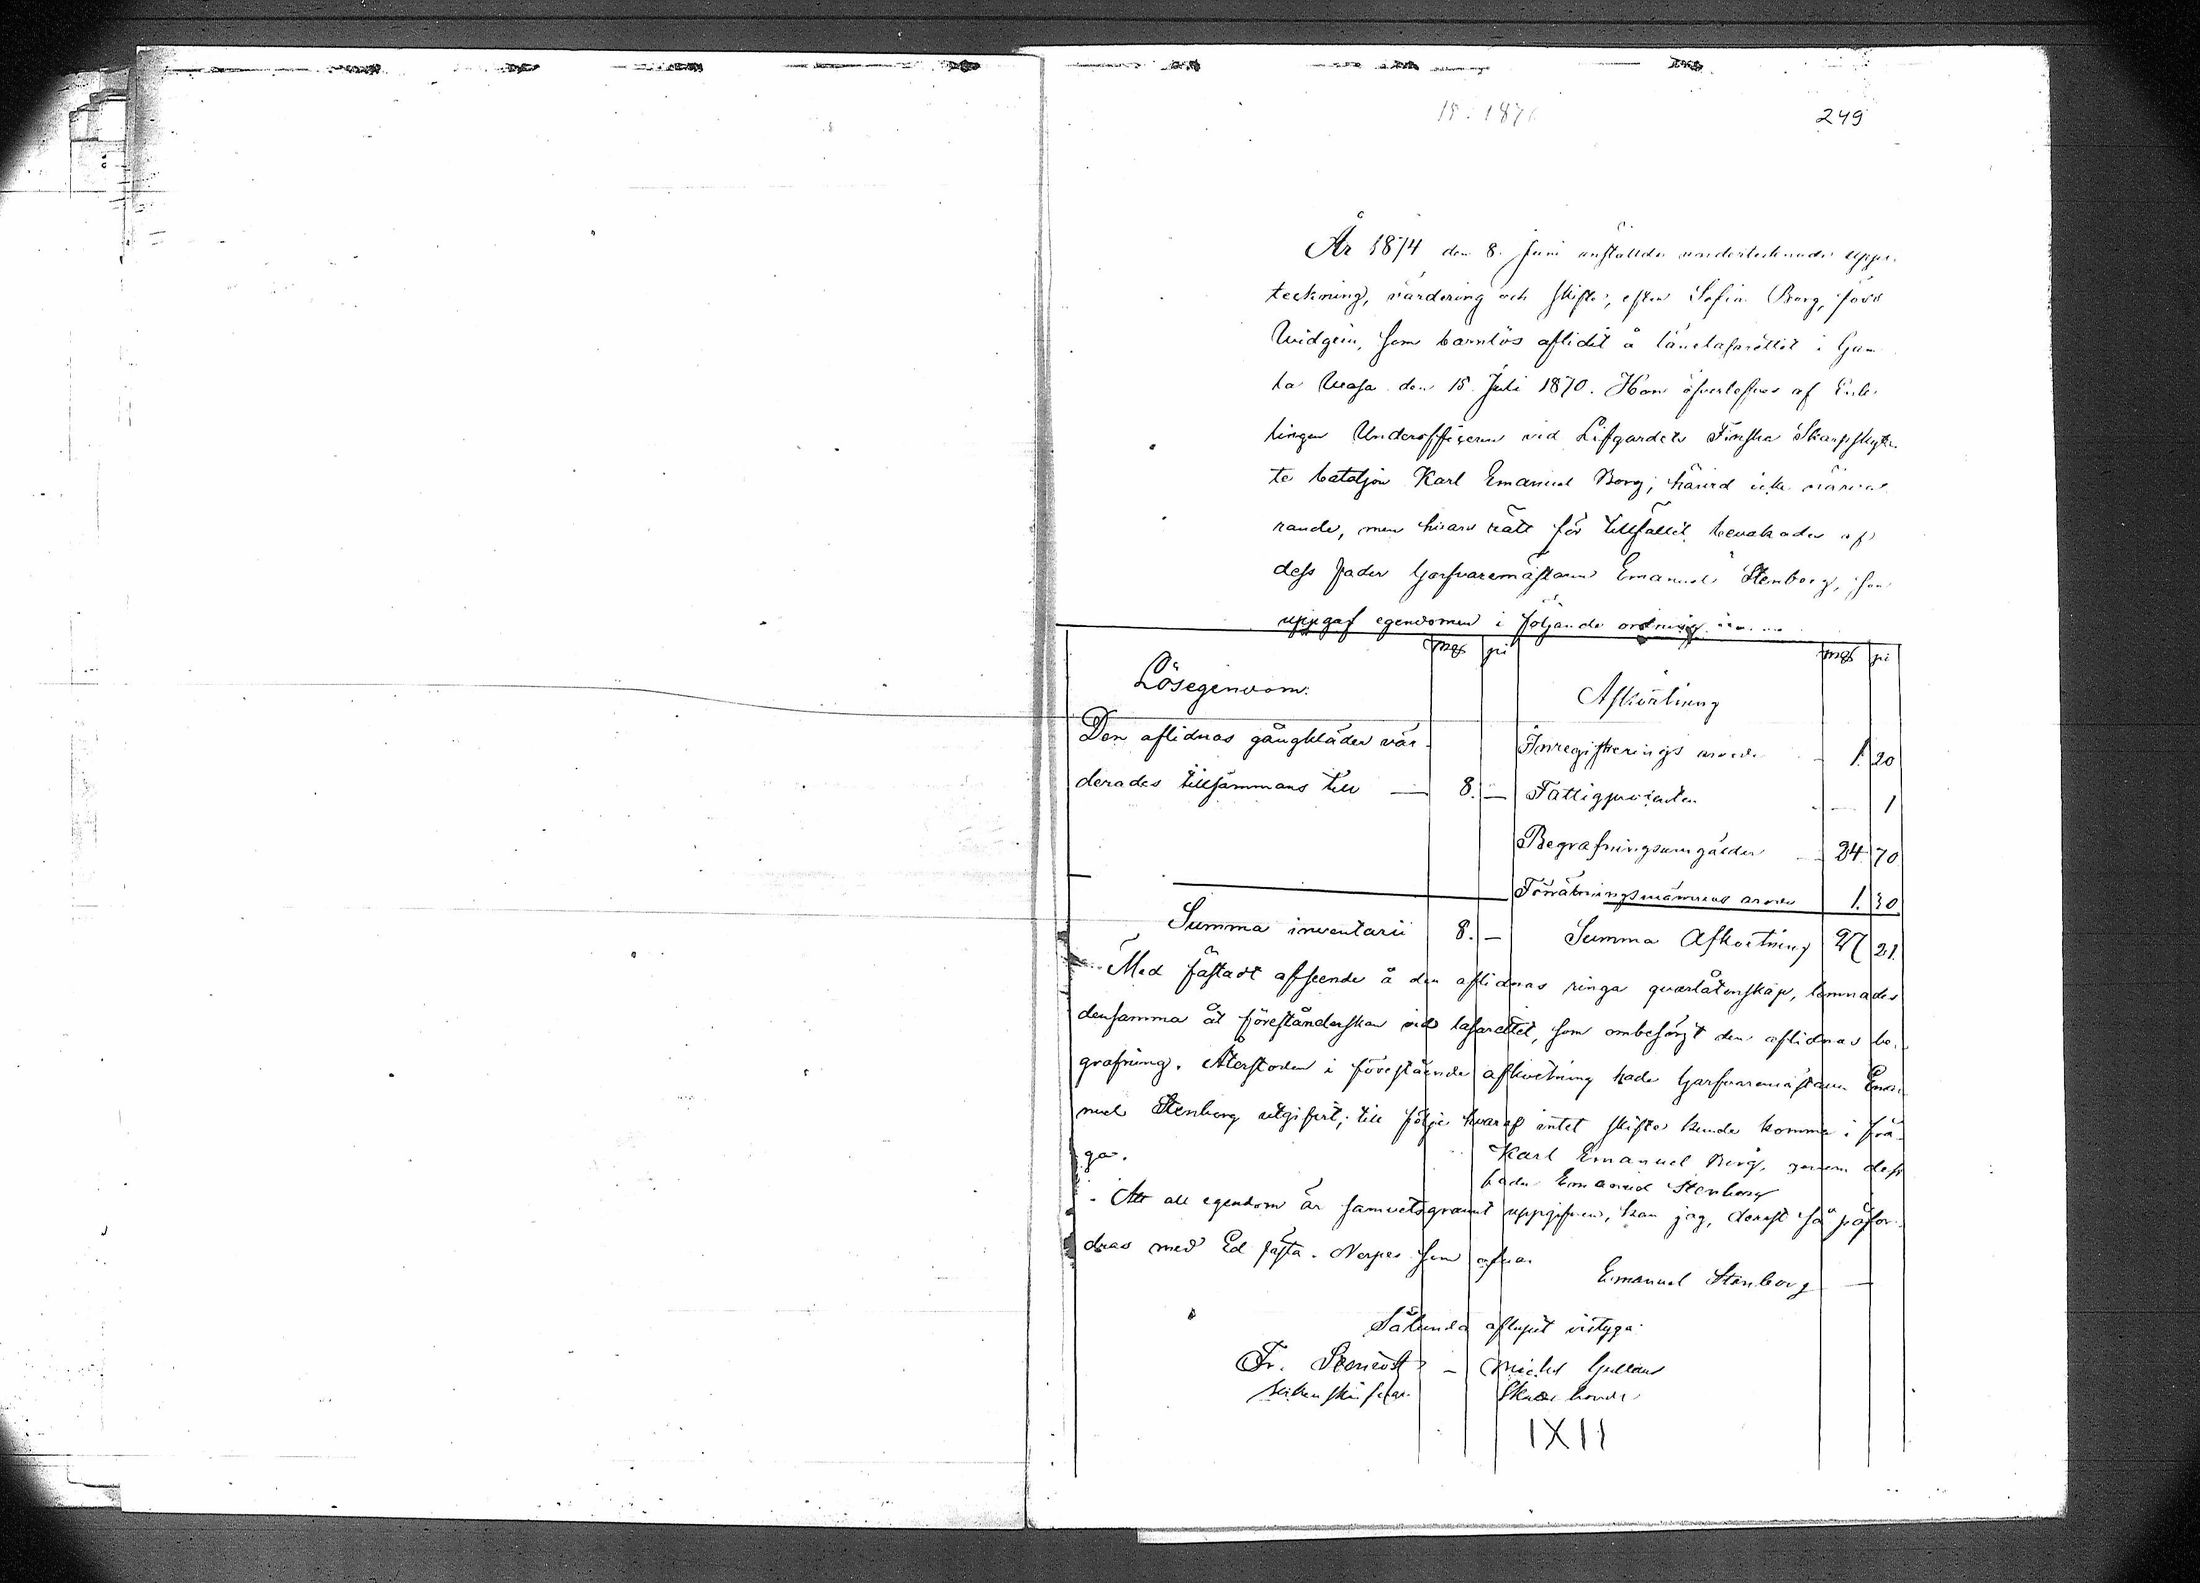 249
År 1874 den 8. Juni anställdes undertecknade uppe-
teckning, värdering och skifte, efter Sofia Borg, född
Widgrén, som barnlös aflidit å länelasarettet i Gam-
la Wasa den 15 Juli 1870. Hon öfverlefves af Enk-
lingen Underofficern vid Lifgardets Finska Skarpskyt-
te bataljon Karl Emanuel Borg; härvid icke närva-
rande, men hvars rätt för tillfället bevakades af
dess fader Garfvaremästaren Emanuel Stenborg, som
uppgaf egendomen i följande ordning
mgf pi mgf pi
Lösegendom:
Afkortning
Den aflidnas gångkläder vär-
derades tillsammans till — 8. —
Inregistrerings arvode 1. 20
Fattigprocenten — 1
Begrafningsomgälder 24 70
Förrättningsmännens arvode 1. 30
Summa inventarii 8. —
Summa Afkortning 27 21.
Med fästadt afseende å den aflidnas ringa qvarlåtenskap, lemnades
densamma åt föreståndarskan vid lasarettet, som ombesörjt den aflidnas be-
grafning. Återstoden i förestående afkortning hade Garfvaremästaren Ema-
nuel Stenborg utgifvit; till följe hvaraf intet skifte kunde komma i frå-
ga.
Karl Emanuel Borg, genom dess
fader Emanuel Stenborg
Att all egendom är samvetsgrannt uppgifven, kan jag, derest så påfor-
dras med Ed fästa. Nerpes som ofvan
Emanuel Stenborg —
Sålunda aflupit vittyga:
Fr. — Michel Gullans
IXII